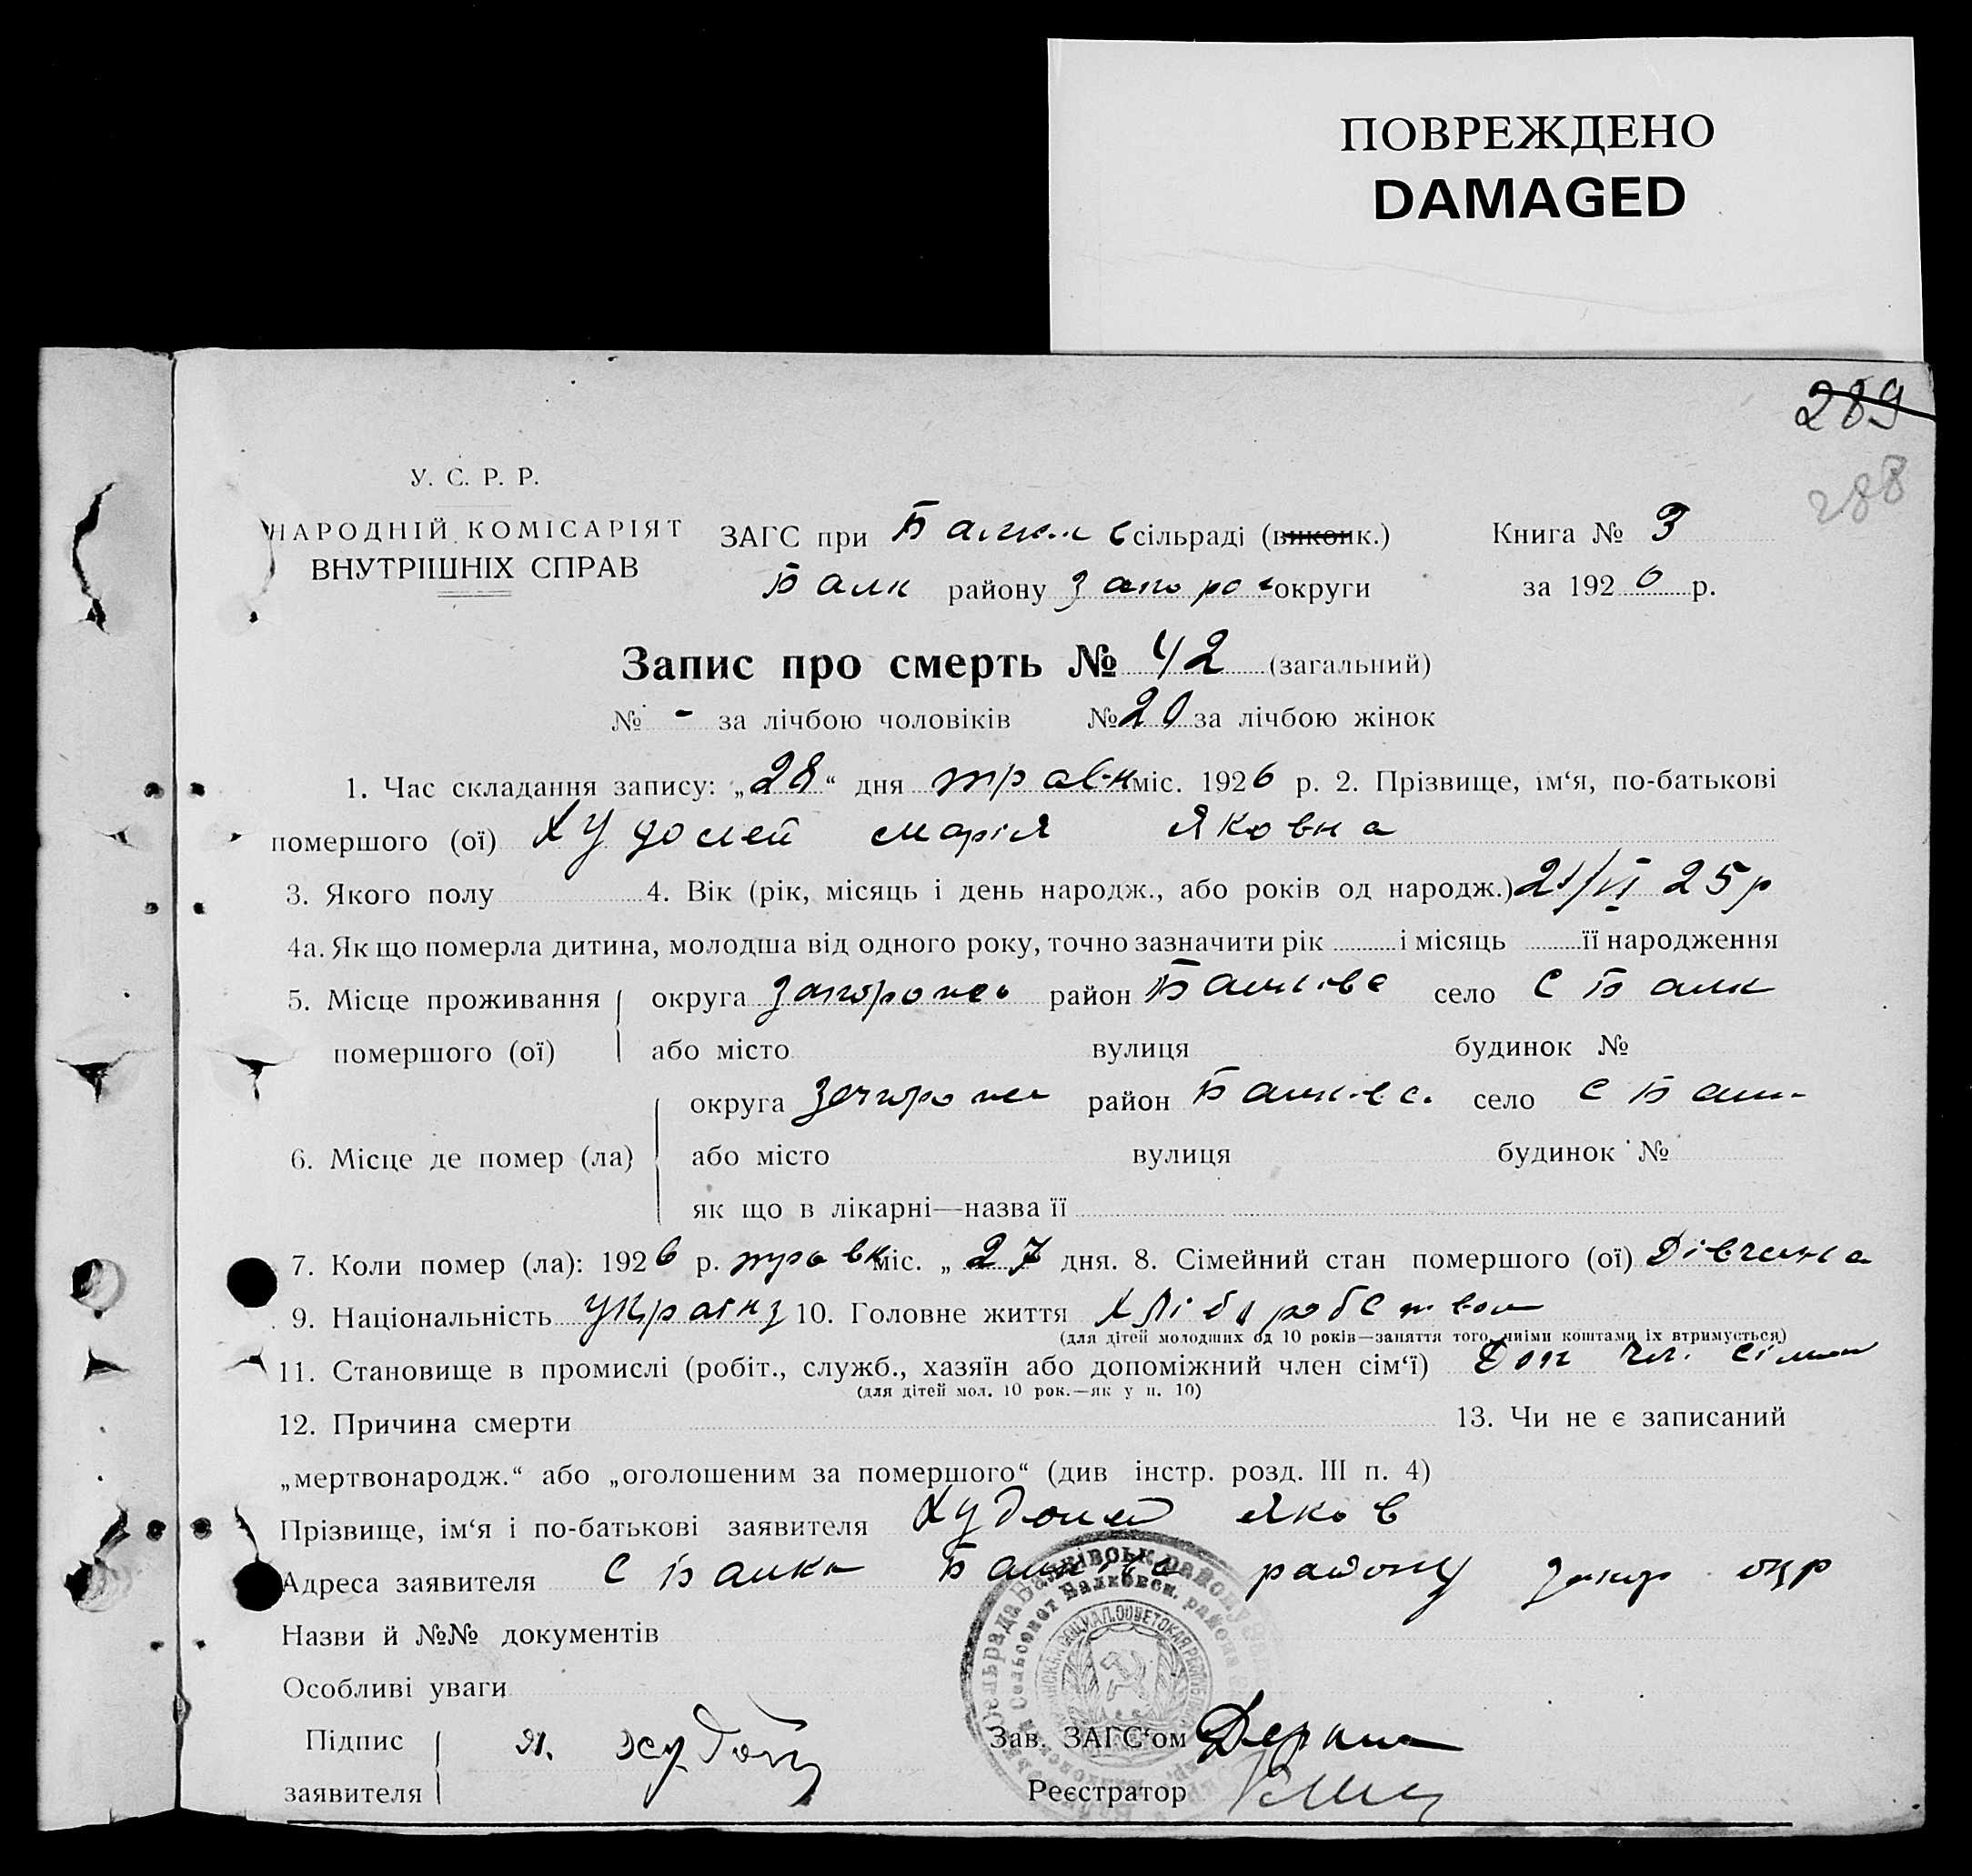 ПОВРЕЖДЕНО
DAMAGED
289
288
У. С. Р. Р.
НАРОДНІЙ КОМІСАРІЯТ
ВНУТРІШНІХ СПРАВ
ЗАГС при сільраді (виконк.) Книга № 3
Балк району Запороз округи за 1926 р.
Запис про смерть № 42 (загальний)
№ - за лічбою чоловіків № 20 за лічбою жінок
1. Час складання запису: „28“ дня травн міс. 1926 р. 2. Прізвище, ім‘я, по-батькові
помершого (ої) Худолей Марія Яковна
3. Якого полу 4. Вік (рік, місяць і день народж., або років од народж.) 21/VI 25 р
4а. Як що померла дитина, молодша від одного року, точно зазначити рік і місяць її народження
5. Місце проживання округа район село С Балк
помершого (ої) або місто вулиця будинок №
округа район село С
6. Місце де помер (ла) або місто вулиця будинок №
як що в лікарні—назва її
7. Коли помер (ла): 1926 р. травн міс. „27 дня. 8. Сімейний стан помершого (ої) Дівчина
9. Національність Україн 10. Головне життя хліборобством
(для дітей молодших од 10 років—заняття того, чиїми коштами їх втримується)
11. Становище в промислі (робіт., служб., хазяїн або допоміжний член сім‘ї) Доп чл. сімьи
(для дітей мол. 10 рок.—як у п. 10)
12. Причина смерти 13. Чи не є записаний
„мертвонародж.“ або „оголошеним за помершого“ (див інстр. розд. III п. 4)
Прізвище, ім‘я і по-батькові заявителя Худолей Яков
Адреса заявителя С Балки району Запор окр
Назви й №№ документів
Особливі уваги
Підпис Я. Худолій Зав. ЗАГС‘ом
заявителя Реєстратор